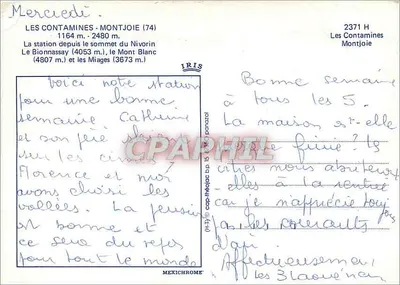 Mercredi.
LES CONTAMINES - MONTJOIE (74)
1164 m. - 2480 m.
La station depuis le sommet du Nivorin
Le Bionnassay (4053 m.), le Mont Blanc
(4807 m.) et les Miages (3673 m.)
2371 H
Les Contamines
Montjoie
IRIS
Voici notre station
pour une bonne
semaine. Catherine
et son père skient
sur les cimes
Florence et moi
avons choisi les
vallées. La pension
est bonne et
ce sera du repos
pour tout le monde
MEXICHROME
CPARHIL
Bonne semaine
à tous les 5.
La maison est-elle
finie? Les
nous
-elles à la rentrée
car je n'apprécie toujours
pas les courants
d'air.
Affectueusement
les 3